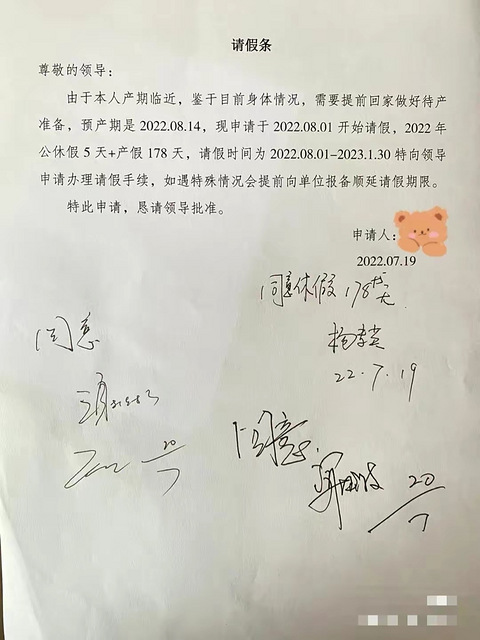 请假条
尊敬的领导：
由于本人产期临近，鉴于目前身体情况，需要提前回家做好待产
准备，预产期是 2022.08.14，现申请于 2022.08.01 开始请假，2022 年
公休假 5 天+产假 178 天，请假时间为 2022.08.01-2023.1.30 特向领导
申请办理请假手续，如遇特殊情况会提前向单位报备顺延请假期限。
特此申请，恳请领导批准。
申请人：
2022.07.19
同意休假178天
22.7.19
同意
20/7
同意
20/7